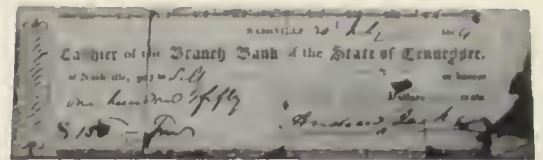 NASHVILLE, 20th July 18
Cashier of the Branch Bank of the State of Tennessee.
at Nashville, pay to Self or bearer
one hundred & fifty Dollars cents
$ 150 Andrew Jackson